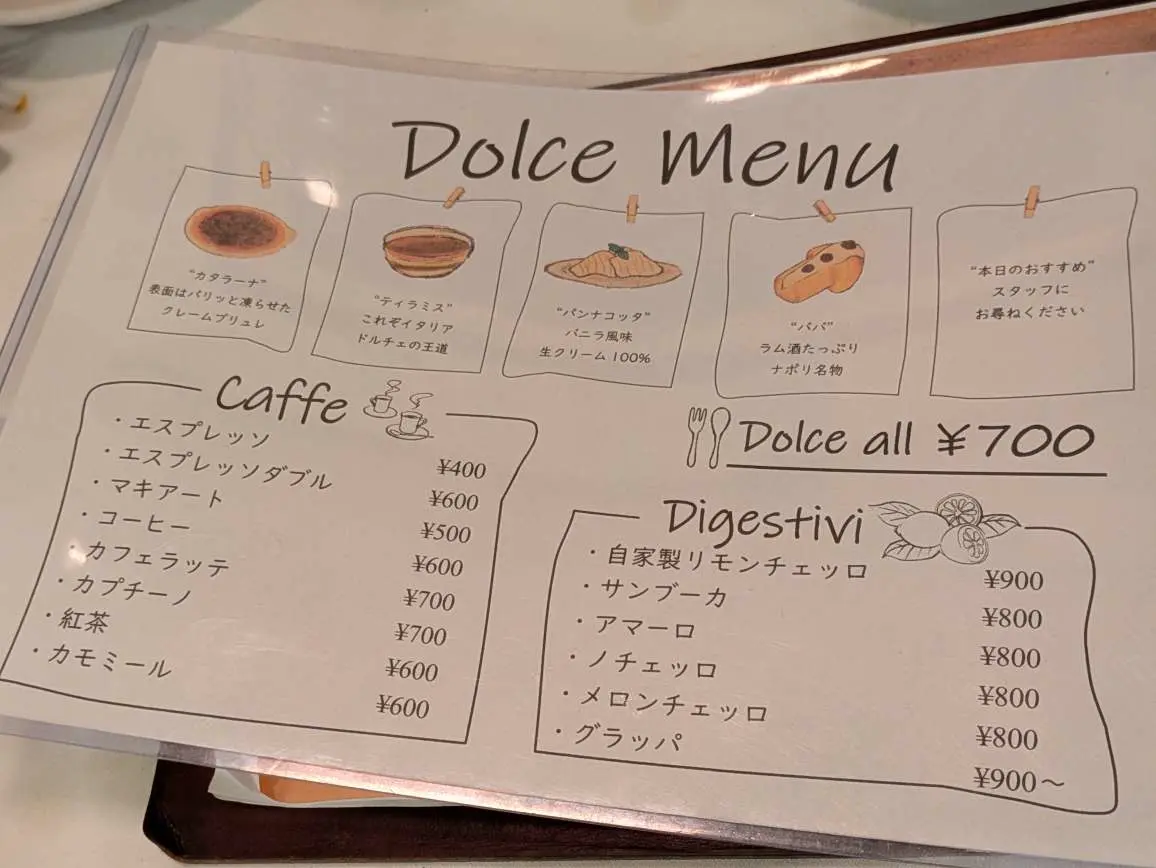 Dolce Menu
"カタラーナ"
表面はパリッと凍らせた
クレームブリュレ
"ティラミス"
これぞイタリア
ドルチェの王道
"パンナコッタ"
バニラ風味
生クリーム 100%
"ババ"
ラム酒たっぷり
ナポリ名物
"本日のおすすめ"
スタッフに
お尋ねください
Dolce all ¥700
Caffe
・エスプレッソ ¥400
・エスプレッソダブル ¥600
・マキアート ¥500
・コーヒー ¥600
・カフェラッテ ¥700
・カプチーノ ¥700
・紅茶 ¥600
・カモミール ¥600
Digestivi
・自家製リモンチェッロ ¥900
・サンブーカ ¥800
・アマーロ ¥800
・ノチェッロ ¥800
・メロンチェッロ ¥800
・グラッパ ¥900〜